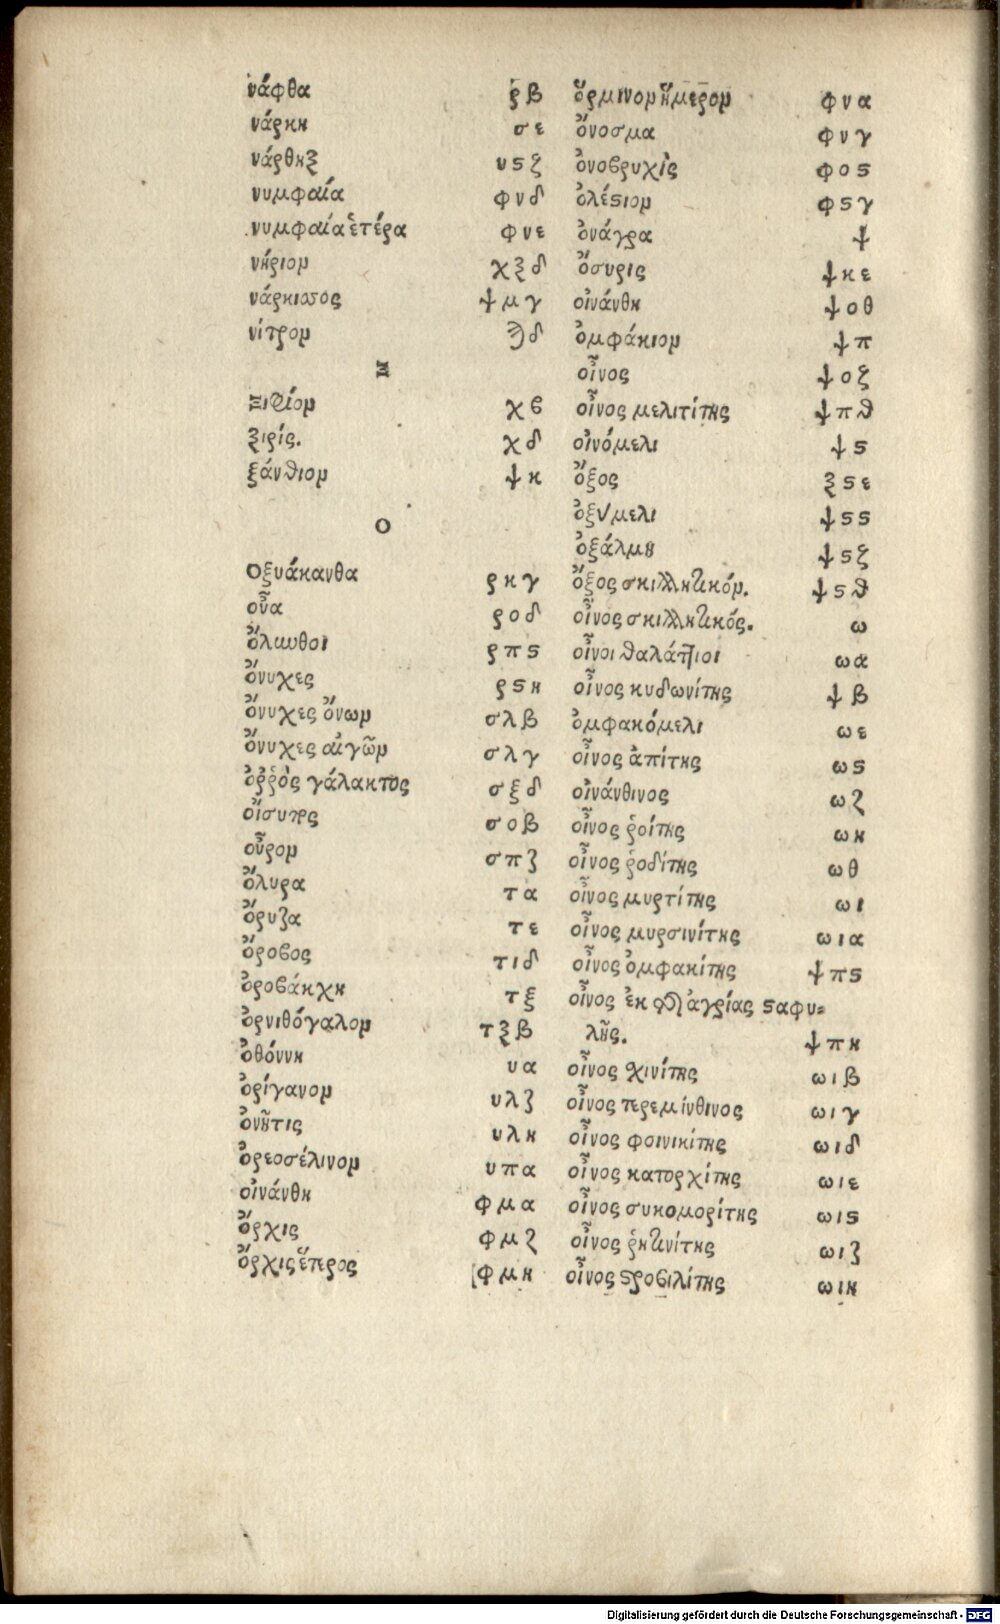 νάφθα ρβ
νάρκη σε
νάρθηξ υϛζ
νυμφαία φνδ
νυμφαία ἑτέρα φνε
νήριον χξδ
νάρκισσος ψμγ
νίτρον ϡδ
Ξ
Ξιφίον χβ
ξιρίς. χδ
ξάνθιον ψκ
Ο
Οξυάκανθα ρκγ
οὖα ροδ
ὄλιυνθοι ρπϛ
ὄνυχες ρϛκ
ὄνυχες ὄνων σλβ
ὄνυχες αἰγῶν σλγ
ὀῤῥὸς γάλακτος σξδ
οἴσυπος σοβ
οὖρον σπζ
ὄλυρα τα
ὄρυζα τε
ὄροβος τιδ
ὀροβάκχη τξ
ὀρνιθόγαλον τξβ
ὀθόννη υα
ὀρίγανον υλζ
ὀνῖτις υλη
ὀρεοσέλινον υπα
οἰνάνθη φμα
ὄρχις φμζ
ὄρχις ἕτερος φμη
ὅρμινον ἥμερον φνα
ὄνοσμα φνγ
ὀνοβρυχὶς φοϛ
ὀλόστιον φϛγ
ὀνάγρα ψ
ὄσυρις ψκε
οἰνάνθη ψοθ
ὀμφάκιον ψπ
οἶνος ψοζ
οἶνος μελιτίτης ψπθ
οἰνόμελι ψϛ
ὄξος ξϛε
ὀξύμελι ψϛϛ
ὀξάλμη ψϛζ
ὄξος σκιλλητικόν. ψϛθ
οἶνος σκιλλητικός. ω
οἶνοι θαλάττιοι ωα
οἶνος κυδωνίτης ψβ
ὀμφακόμελι ωε
οἶνος ἀπίτης ωϛ
οἰνάνθινος ωζ
οἶνος ῥοίτης ωη
οἶνος ῥοδίτης ωθ
οἶνος μυρτίτης ωι
οἶνος μυρσινίτης ωια
οἶνος ὀμφακίτης ψπϛ
οἶνος ἐκ τῆς ἀγρίας σταφυ=
λῆς. ψπη
οἶνος χινίτης ωιβ
οἶνος τερεμίνθινος ωιγ
οἶνος φοινικίτης ωιδ
οἶνος κατορχίτης ωιε
οἶνος συκομορίτης ωιϛ
οἶνος ῥητινίτης ωιζ
οἶνος στροβιλίτης ωιη
Digitalisierung gefördert durch die Deutsche Forschungsgemeinschaft - DFG